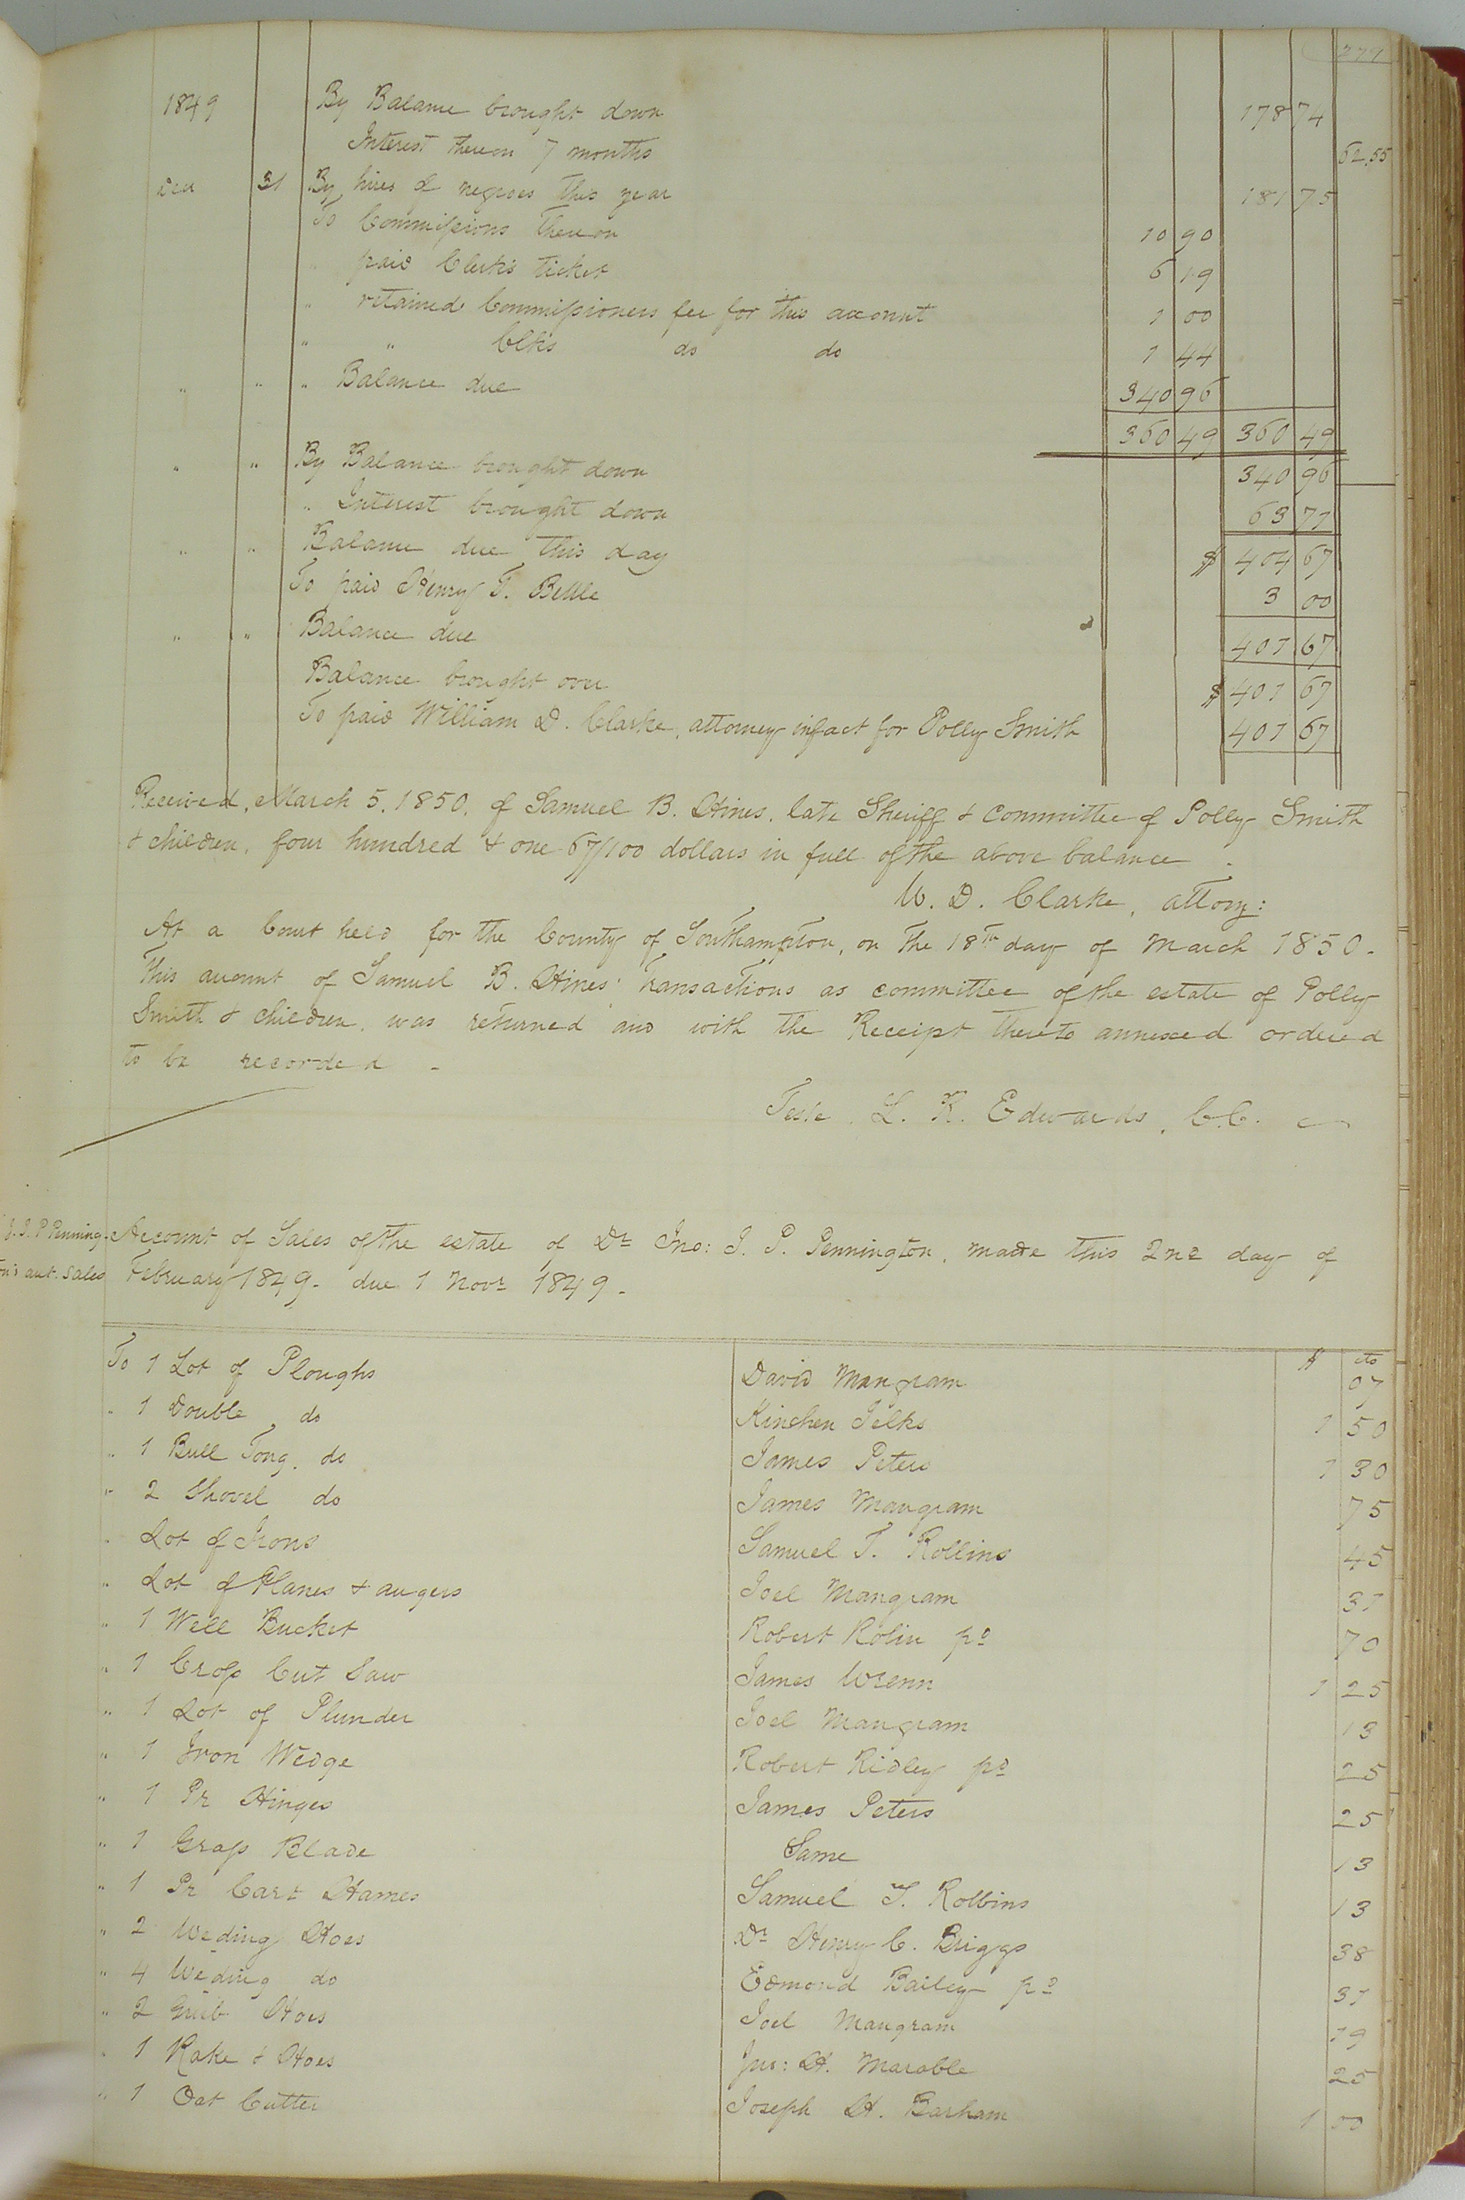 277
1849 By Balance brought down 178 74
Interest thereon 7 months 62.55
Dec 31 By hires of negroes this year 181 75
To Commissions thereon 10 90
paid Clerks ticket 6 19
" retained Commissioners fee for this account 1 00
" " Clks do do 1 44
" " " Balance due 340 96
360 49 360 49
" " By Balance brought down 340 96
" Interest brought down 63 71
" " Balance due this day $ 404 67
To paid Henry T. Bettle 3 00
" " Balance due 401 67
Balance brought over $ 401 67
To paid William D. Clarke, attorney in fact for Polly Smith 401 67
Received, March 5, 1850, of Samuel B. Hines, late Sheriff & committee of Polly Smith
& children, four hundred & one 67/100 dollars in full of the above balance.
W. D. Clarke, attory:
At a Court held for the County of Southampton, on the 18th day of March 1850.
This account of Samuel B. Hines' Transactions as committee of the estate of Polly
Smith & children, was returned and with the Receipt thereto annexed ordered
to be recorded.
Teste, L. R. Edwards, C.C.
J. J. P Penning-
ton's aut. Sales
Account of Sales of the estate of Dr Jno: J. P. Pennington, made this 2nd day of
February 1849. due 1 Novr 1849.
$ cts
To 1 Lot of Ploughs David Mangram 07
" 1 Double do Kinchen Jelks 1 50
" 1 Bull Tong. do James Peters 1 30
" 2 Shovel do James Mangram 75
" Lot of Irons Samuel T. Rollins 45
" Lot of Planes & augers Joel Mangram 31
" 1 Well Bucket Robert Rolin pd 70
" 1 Cross Cut Saw James Wrenn 1 25
" 1 Lot of Plunder Joel Mangram 13
" 1 Iron Wedge Robert Ridley pd 25
" 1 Pr Hinges James Peters 25
" 1 Grass Blade Same 13
" 1 Pr Cart Hames Samuel T. Robbins 13
" 2 Weding Hoes Dr Henry C. Briggs 38
" 4 Weding do Edmond Bailey pd 31
" 2 Grub Hoes Joel Mangram 19
" 1 Rake & Hoes Jno: H. Marable 25
" 1 Oat Cutter Joseph H. Barham 1 00